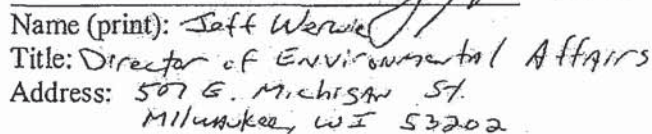 Name (print): Jeff Werwie
Title: Director of Environmental Affairs
Address: 507 E. Michigan St.
Milwaukee, WI 53202